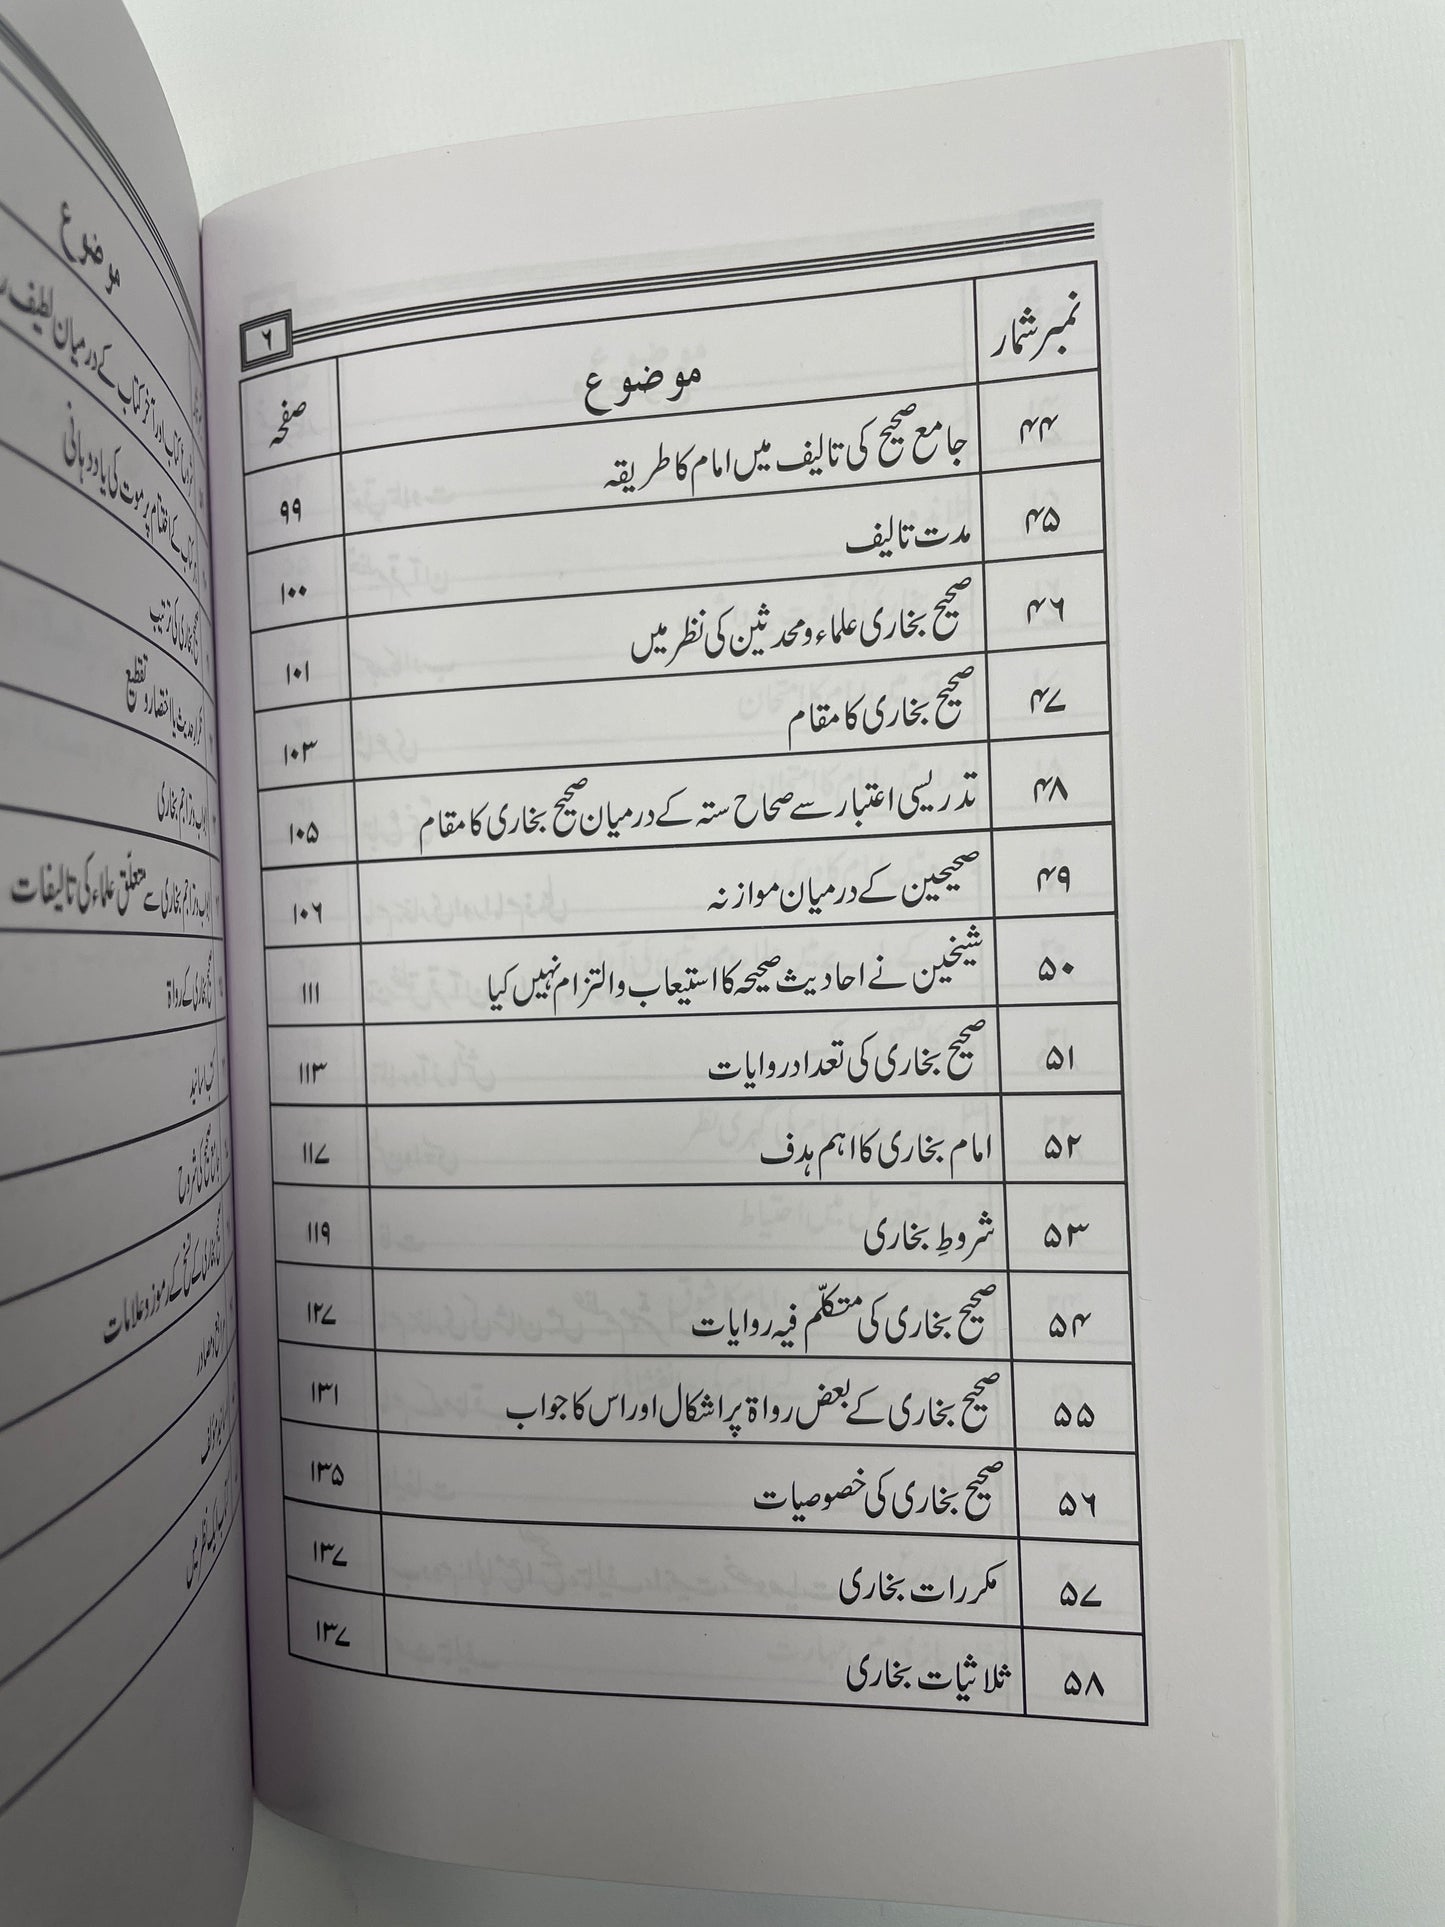 ۶
نمبر شمار موضوع صفحہ
۴۴ جامع صحیح کی تالیف میں امام کا طریقہ ۹۹
۴۵ مدت تالیف ۱۰۰
۴۶ صحیح بخاری علماء و محدثین کی نظر میں ۱۰۱
۴۷ صحیح بخاری کا مقام ۱۰۳
۴۸ تدریسی اعتبار سے صحاح ستہ کے درمیان صحیح بخاری کا مقام ۱۰۵
۴۹ صحیحین کے درمیان موازنہ ۱۰۶
۵۰ شیخین نے احادیث صحیحہ کا استیعاب و التزام نہیں کیا ۱۱۱
۵۱ صحیح بخاری کی تعداد روایات ۱۱۳
۵۲ امام بخاری کا اہم ہدف ۱۱۷
۵۳ شروطِ بخاری ۱۱۹
۵۴ صحیح بخاری کی متکلّم فیہ روایات ۱۲۷
۵۵ صحیح بخاری کے بعض رواۃ پر اشکال اور اس کا جواب ۱۳۱
۵۶ صحیح بخاری کی خصوصیات ۱۳۵
۵۷ مکررات بخاری ۱۳۷
۵۸ ثلاثیات بخاری ۱۳۷
موضوع
کتاب اور آخر کتاب کے درمیان لطیف
کتاب کے اختتام پر موت کی یاددہانی
صحیح بخاری کی ترتیب
تکرار حدیث یا اختصار و تقطیع
ابواب و تراجم بخاری
ابواب و تراجم بخاری سے متعلق علماء کی تالیفات
صحیح بخاری کے رواۃ
صحیح بخاری کے نسخ کے رموز و علامات